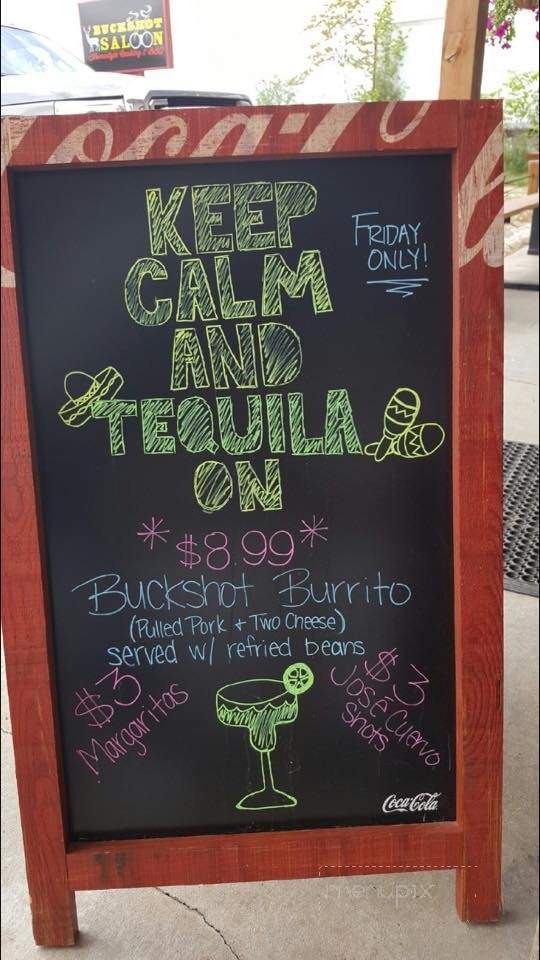 BUCKSHOT
SALOON
Homestyle Cooking & BBQ
Coca-Cola
KEEP
CALM
AND
TEQUILA
ON
FRIDAY
ONLY!
*$8.99*
Buckshot Burrito
(Pulled Pork + Two Cheese)
served w/ refried beans
$3
Margaritas
$3
José Cuervo
shots
Coca-Cola
menupix